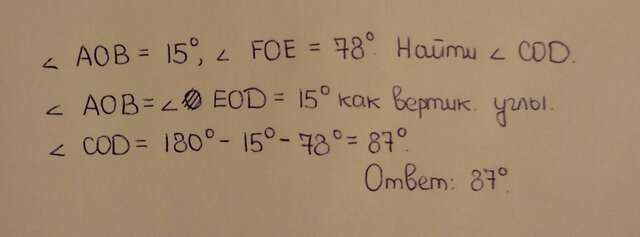 ∠ AOB = 15°, ∠ FOE = 78°. Найти ∠ COD.
∠ AOB = ∠ EOD = 15° как вертик. углы.
∠ COD = 180° - 15° - 78° = 87°.
Ответ: 87°.